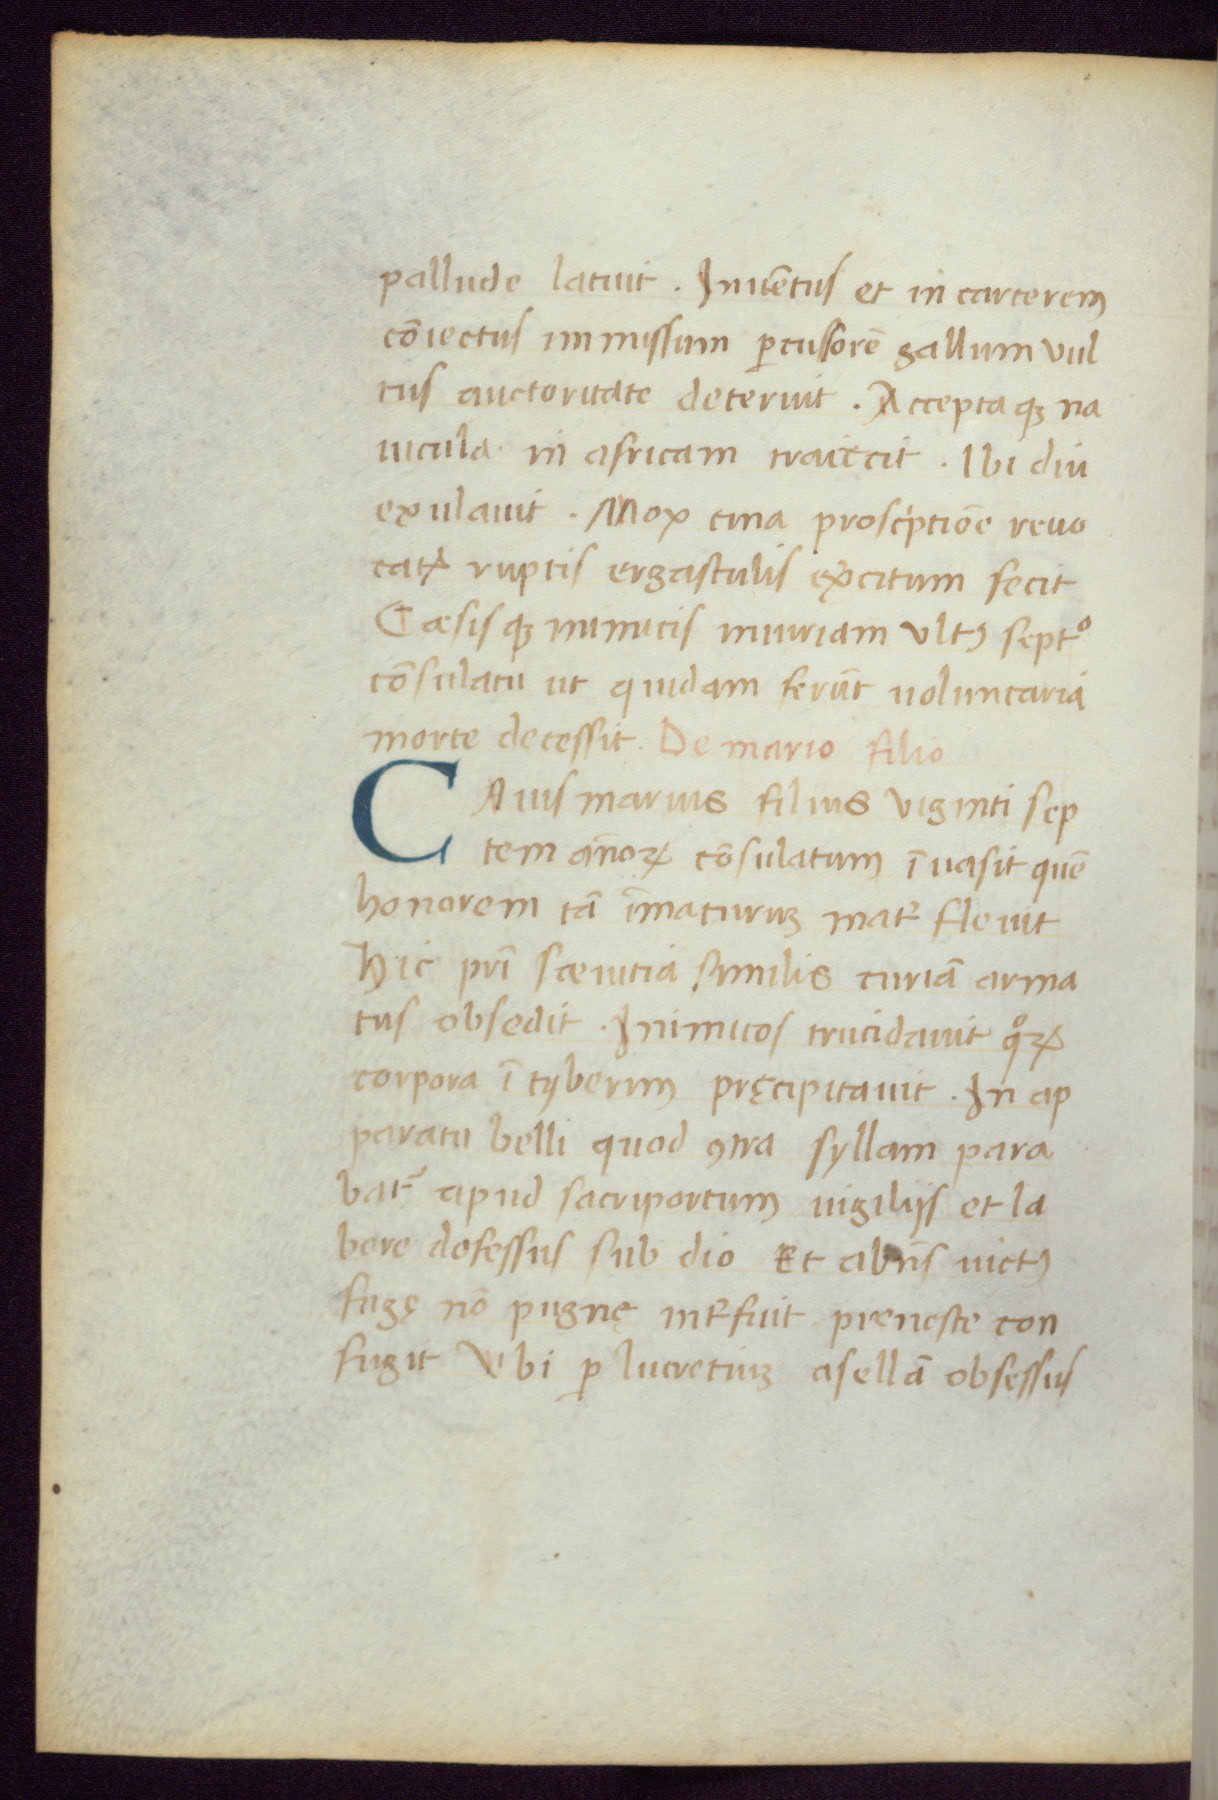 pallude latuit . Inuētus et in carcerem
cōiectus immissum ꝑcussorē gallum vul
tus auctoritate deteruit . Acceptaqꝫ na
uicula in africam traiecit . Ibi diu
exulauit . Mox cina proscͥptiōe reuo
catꝰ ruptis ergastulis ex̾citum fecit
Cæsisqꝫ inimicis iniuriam vltꝰ septͦ
cōsulatu ut quidam ferūt uoluntariā
morte decessit . De mario filio
CAius marius filius viginti sep
tem ānoꝝ cōsulatum ī uasit quē
honorem tā īmaturuꝫ mat̾ fleuit
Hic pr̄i sæuitia similis curiā arma
tus obsedit . Inimicos trucidauit qͦꝝ
corpora ī tyberim pręcipitauit . In ap
paratu belli quod ꝯtra syllam para
bat̾ apud sacriportum uigilijs et la
bore defessus sub dio Et abn̄s uictꝰ
fugę nō pugnę int̾fuit preneste con
fugit Vbi ꝑ lucretiuꝫ asellā obsessus